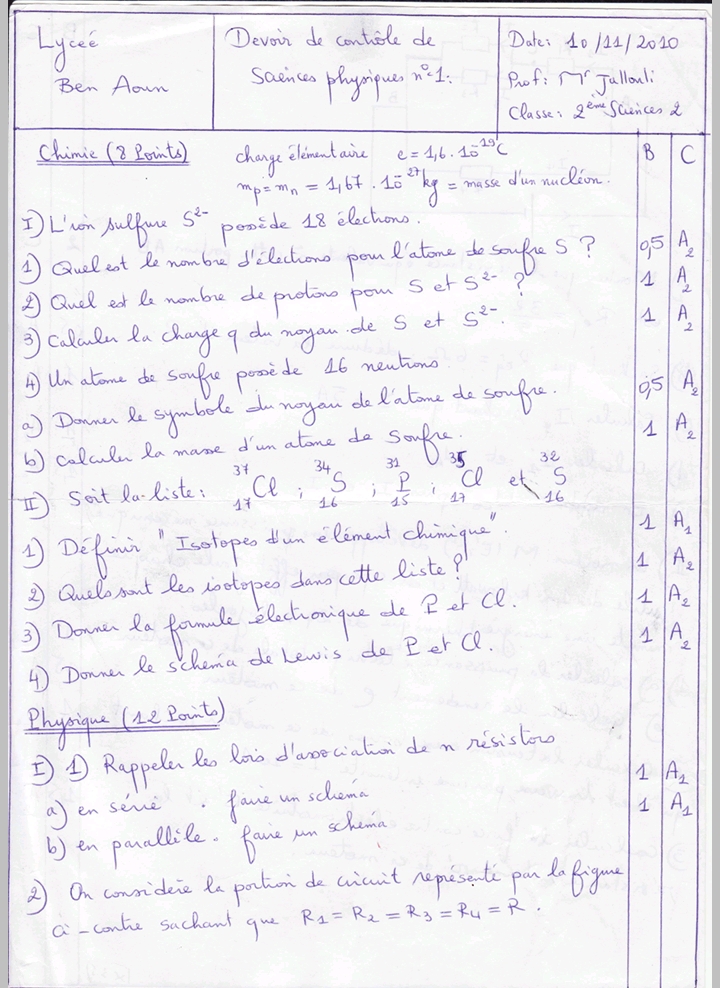 Lyceé
Ben Aoun
Devoir de contrôle de
Sciences physiques n°1.
Date: 10/11/2010
Prof: Mr Jallouli
Classe: 2ème Sciences 2
Chimie (8 Points) charge élémentaire e = 1,6 . 10⁻¹⁹C B C
mp = mn = 1,67 . 10⁻²⁷ kg = masse d'un nucléon.
I) L'ion sulfure S²⁻ possède 18 électrons.
1) Quel est le nombre d'électrons pour l'atome de soufre S ? 0,5 A₂
2) Quel est le nombre de protons pour S et S²⁻ ? 1 A₂
3) Calculer la charge q du noyau de S et S²⁻. 1 A₂
4) Un atome de soufre possède 16 neutrons.
a) Donner le symbole du noyau de l'atome de soufre. 0,5 A₂
b) Calculer la masse d'un atome de soufre. 1 A₂
II) Soit la liste : ³⁷₁₇Cl ; ³⁴₁₆S ; ³¹₁₅P ; ³⁵₁₇Cl et ³²₁₆S
1) Définir "Isotopes d'un élément chimique". 1 A₁
2) Quels sont les isotopes dans cette liste ? 1 A₂
3) Donner la formule électronique de P et Cl. 1 A₂
4) Donner le schéma de Lewis de P et Cl. 1 A₂
Physique (12 Points)
I) 1) Rappeler les lois d'association de n résistors
a) en série . faire un schéma 1 A₁
b) en parallèle . faire un schéma 1 A₁
2) On considère la portion de circuit représenté par la figure
ci-contre sachant que R₁ = R₂ = R₃ = R₄ = R .